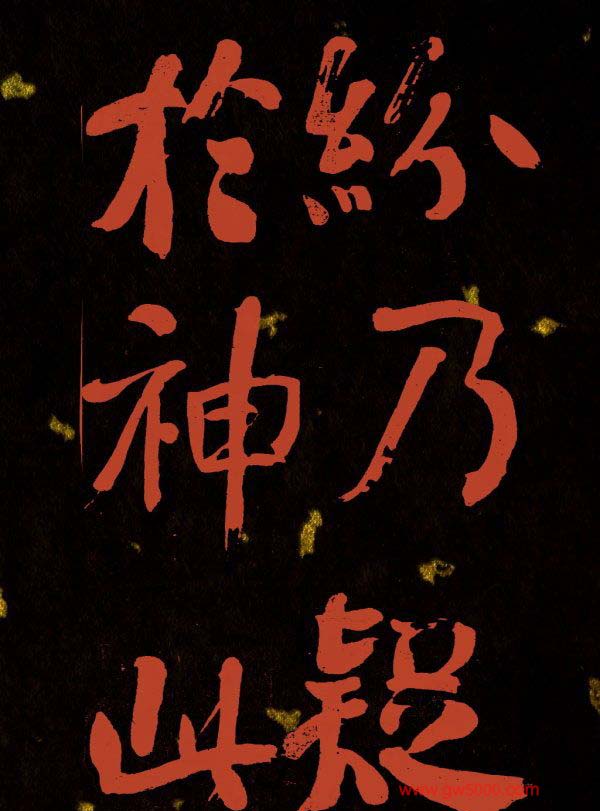 紛乃疑
於神此
www.gw5000.com